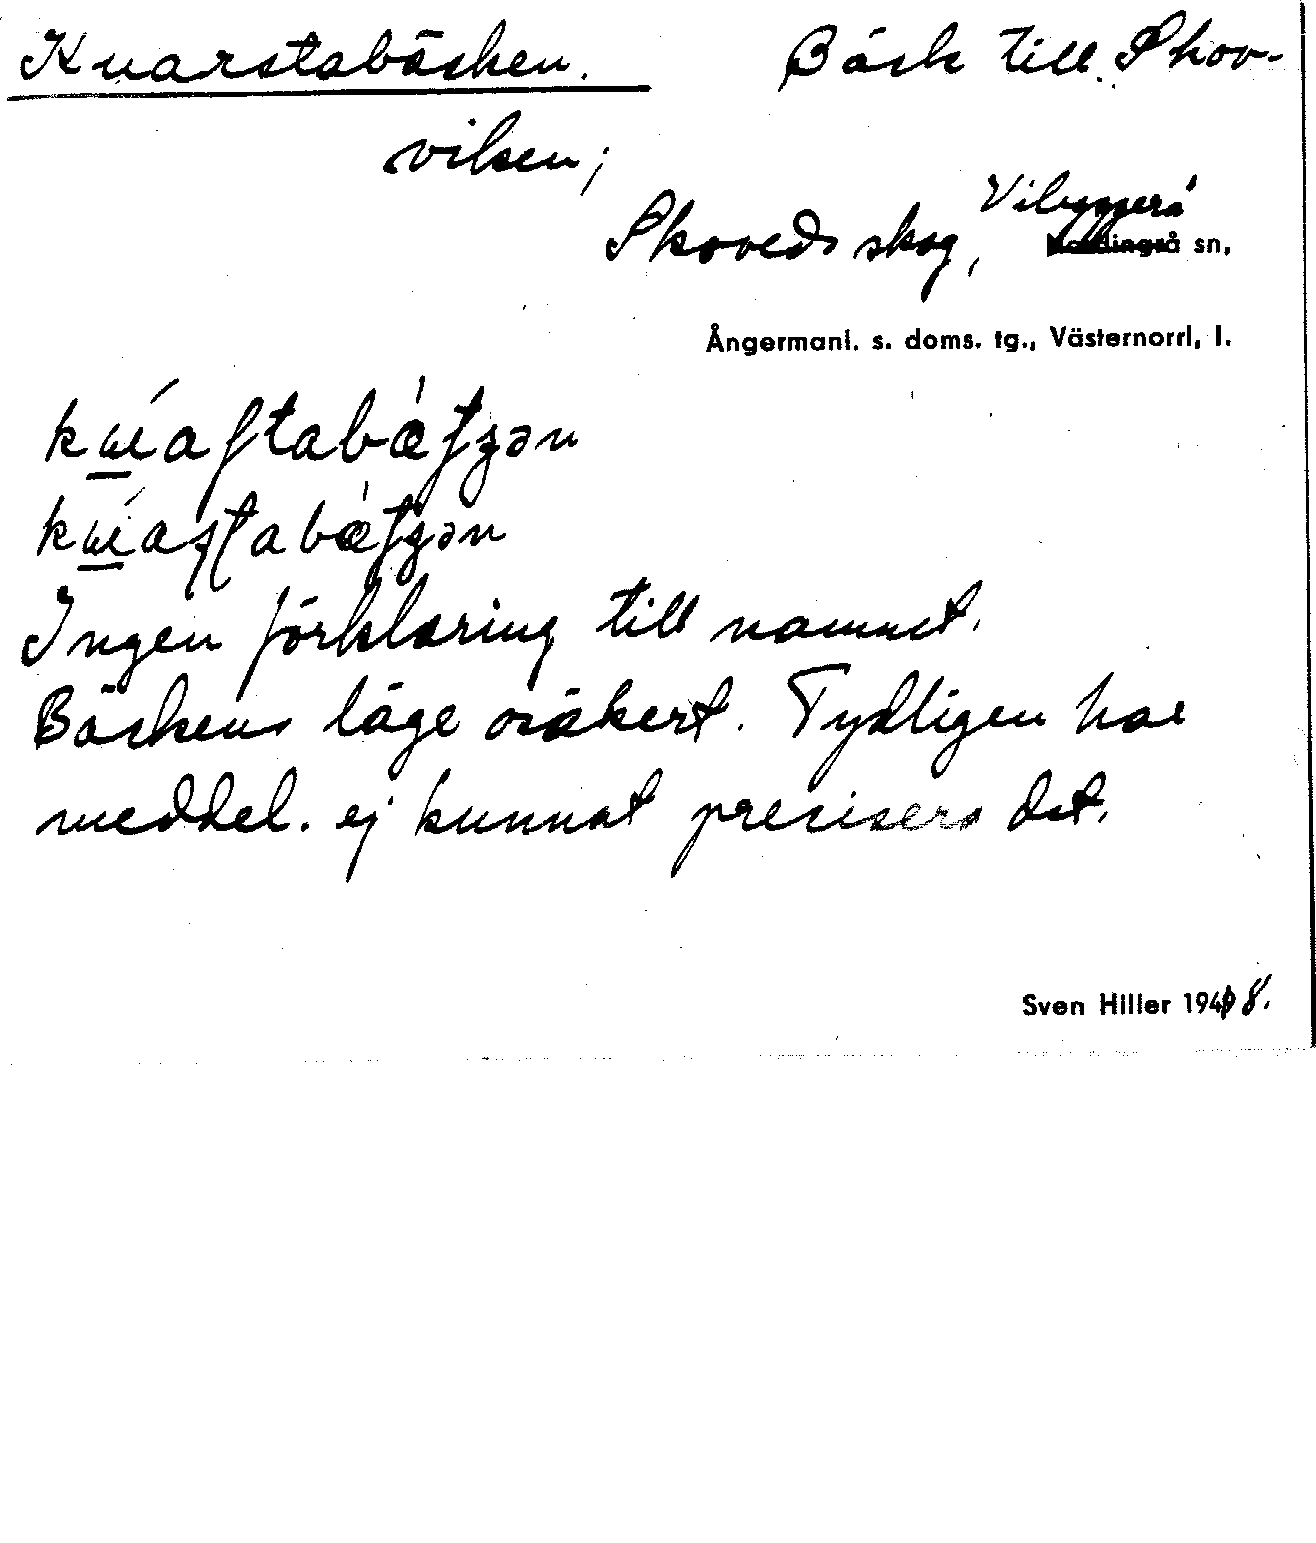 Knarstabäcken. Bäck till Skov-
viken;
Skoveds skog, Vibyggerå
Nordingrå sn,
Ångermanl. s. doms. tg., Västernorrl, l.
Ingen förklaring till namnet.
Bäckens läge osäkert. Tydligen har
meddel. ej kunnat precisera det.
Sven Hiller 1948.